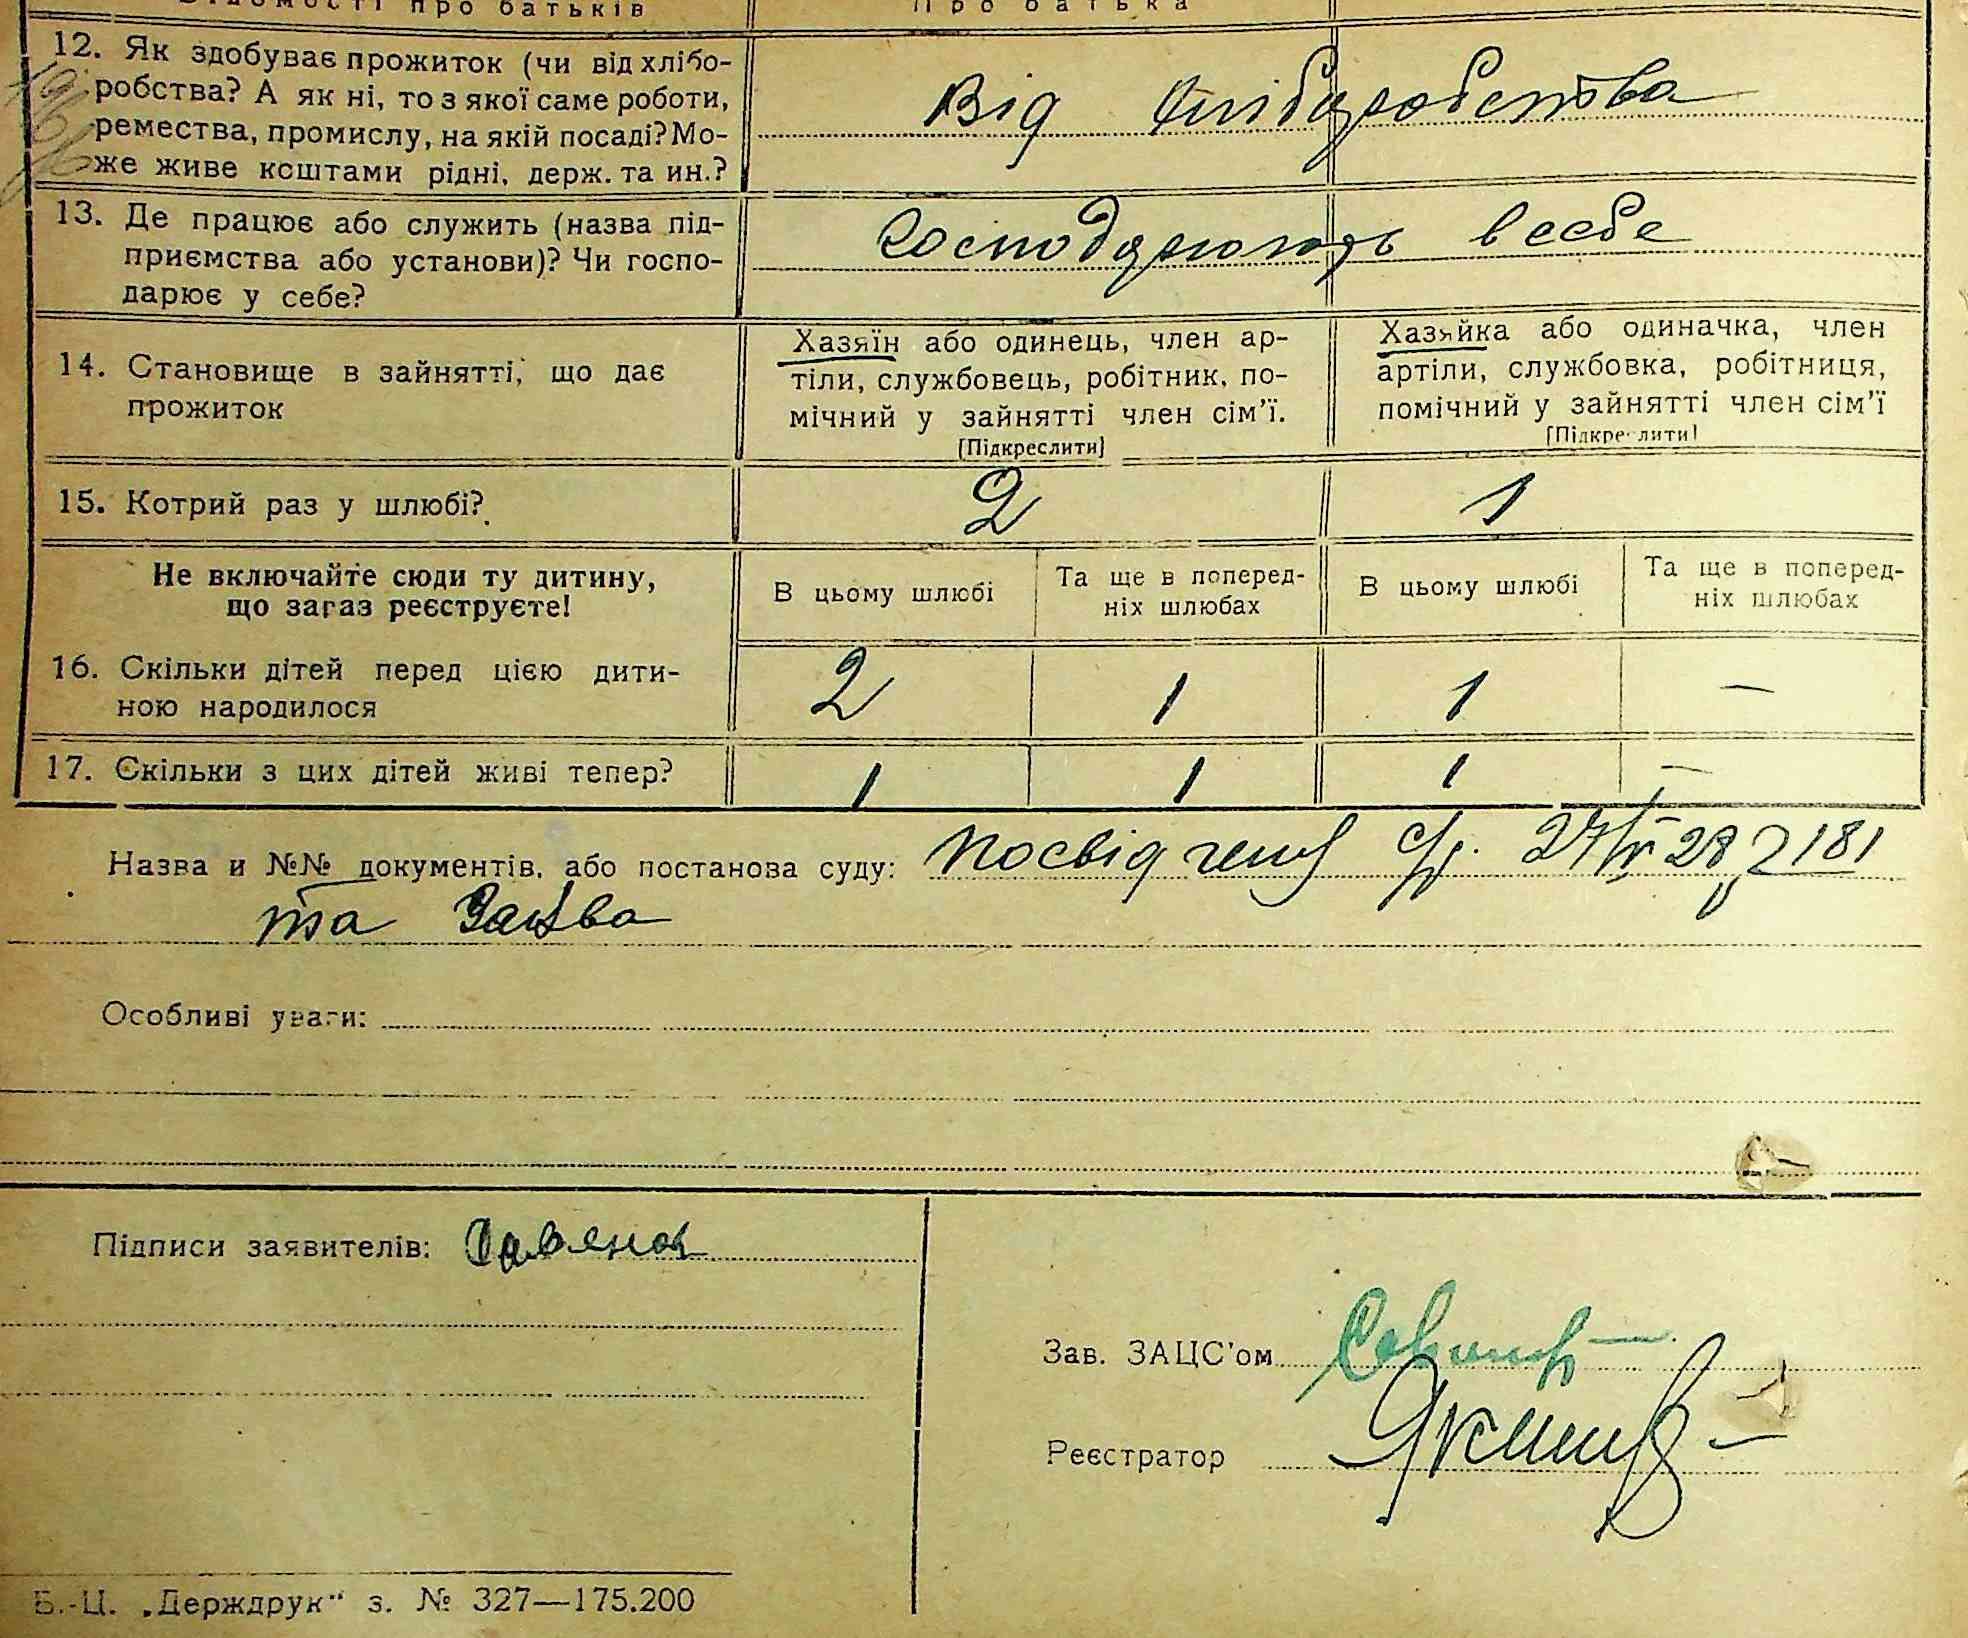 Відомості про батьків Про батька
12. Як здобуває прожиток (чи від хлібо-
робства? А як ні, то з якої саме роботи,
ремества, промислу, на якій посаді? Мо-
же живе коштами рідні, держ. та ин.?
Від хліборобства
13. Де працює або служить (назва під-
приємства або установи)? Чи госпо-
дарює у себе?
Господарюють в себе
14. Становище в зайнятті, що дає
прожиток
Хазяїн або одинець, член ар-
тіли, службовець, робітник, по-
мічний у зайнятті член сім'ї.
[Підкреслити]
Хазяйка або одиначка, член
артіли, службовка, робітниця,
помічний у зайнятті член сім'ї
[Підкреслити]
15. Котрий раз у шлюбі? 2 1
Не включайте сюди ту дитину,
що зараз реєструєте!
В цьому шлюбі
Та ще в поперед-
ніх шлюбах
В цьому шлюбі
Та ще в поперед-
ніх шлюбах
16. Скільки дітей перед цією дити-
ною народилося
2 1 1 —
17. Скільки з цих дітей живі тепер? 1 1 1 —
Назва и №№ документів, або постанова суду: Посвідчення с/р. 27/IV 28 181
та Заява
Особливі уваги:
Підписи заявителів:
Зав. ЗАЦС'ом
Реєстратор
Б.-Ц. „Держдрук" з. № 327—175.200